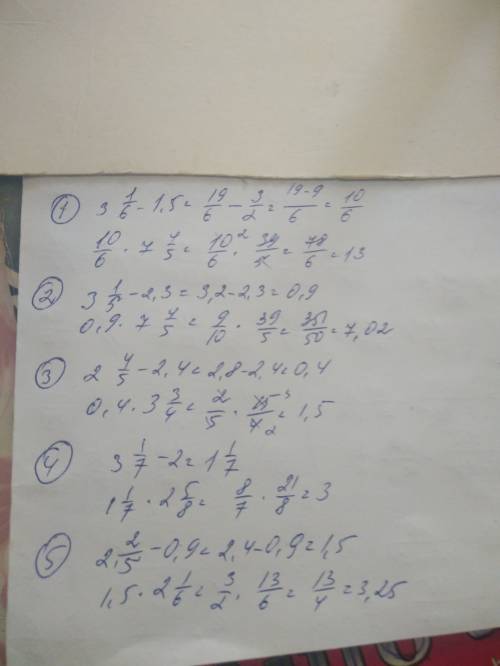 ① 3 1/6 - 1,5 = 19/6 - 3/2 = 19-9/6 = 10/6
10/6 · 7 4/5 = 10²/6 · 39/5 = 78/6 = 13
② 3 1/5 - 2,3 = 3,2 - 2,3 = 0,9
0,9 · 7 4/5 = 9/10 · 39/5 = 351/50 = 7,02
③ 2 4/5 - 2,4 = 2,8 - 2,4 = 0,4
0,4 · 3 3/4 = 2/5 · 15³/4₂ = 1,5
④ 3 1/7 - 2 = 1 1/7
1 1/7 · 2 5/8 = 8/7 · 21/8 = 3
⑤ 2 2/5 - 0,9 = 2,4 - 0,9 = 1,5
1,5 · 2 1/6 = 3/2 · 13/6 = 13/4 = 3,25